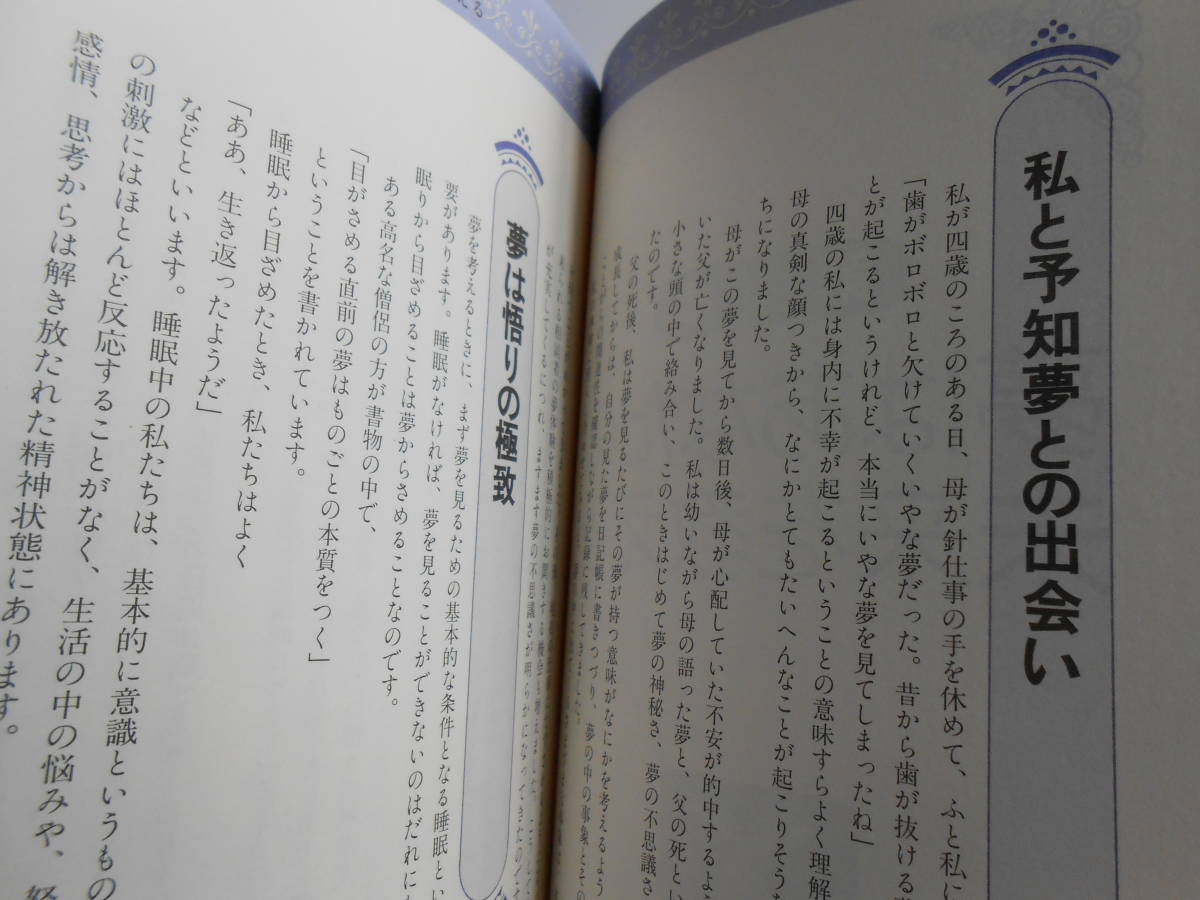 私と予知夢との出会い
私が四歳のころのある日、母が針仕事の手を休めて、ふと私に
「歯がボロボロと欠けていくいやな夢だった。昔から歯が抜ける
とが起こるというけれど、本当にいやな夢を見てしまったね」
四歳の私には身内に不幸が起こるということの意味すらよく理解
母の真剣な顔つきから、なにかとてもたいへんなことが起こりそう
ちになりました。
母がこの夢を見てから数日後、母が心配していた不安が的中するよ
いた父が亡くなりました。私は幼いながら母の語った夢と、父の死とい
小さな頭の中で絡み合い、このときはじめて夢の神秘さ、夢の不思議さ
たのです。
父の死後、私は夢を見るたびにその夢が持つ意味がなにかを考えるよう
成長してからは、自分の見た夢を日記帳に書きつづり、夢の中の事象とその
える
夢は悟りの極致
夢を考えるときに、まず夢を見るための基本的な条件となる睡眠とい
要があります。睡眠がなければ、夢を見ることができないのはだれに
眠りから目ざめることは夢からさめることなのです。
ある高名な僧侶の方が書物の中で、
「目がさめる直前の夢はものごとの本質をつく」
ということを書かれています。
睡眠から目ざめたとき、私たちはよく
「ああ、生き返ったようだ」
などといいます。睡眠中の私たちは、基本的に意識というもの
の刺激にはほとんど反応することがなく、生活の中の悩みや、
感情、思考からは解き放たれた精神状態にあります。